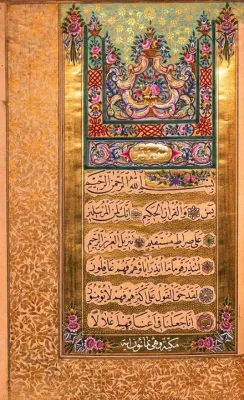 بِسْمِ اللهِ الرَّحْمٰنِ الرَّحِيمِ
يس وَالْقُرْاٰنِ الْحَكِيمِ اِنَّكَ لَمِنَ الْمُرْسَلِينَ
عَلٰى صِرَاطٍ مُسْتَقِيمٍ تَنْزِيلَ الْعَزِيزِ الرَّحِيمِ
لِتُنْذِرَ قَوْمًا مَا اُنْذِرَ اٰبَاؤُهُمْ فَهُمْ غَافِلُونَ
لَقَدْ حَقَّ الْقَوْلُ عَلٰى اَكْثَرِهِمْ فَهُمْ لَا يُؤْمِنُونَ
اِنَّا جَعَلْنَا فِي اَعْنَاقِهِمْ اَغْلَالًا
مكية وهي ثمانون اية